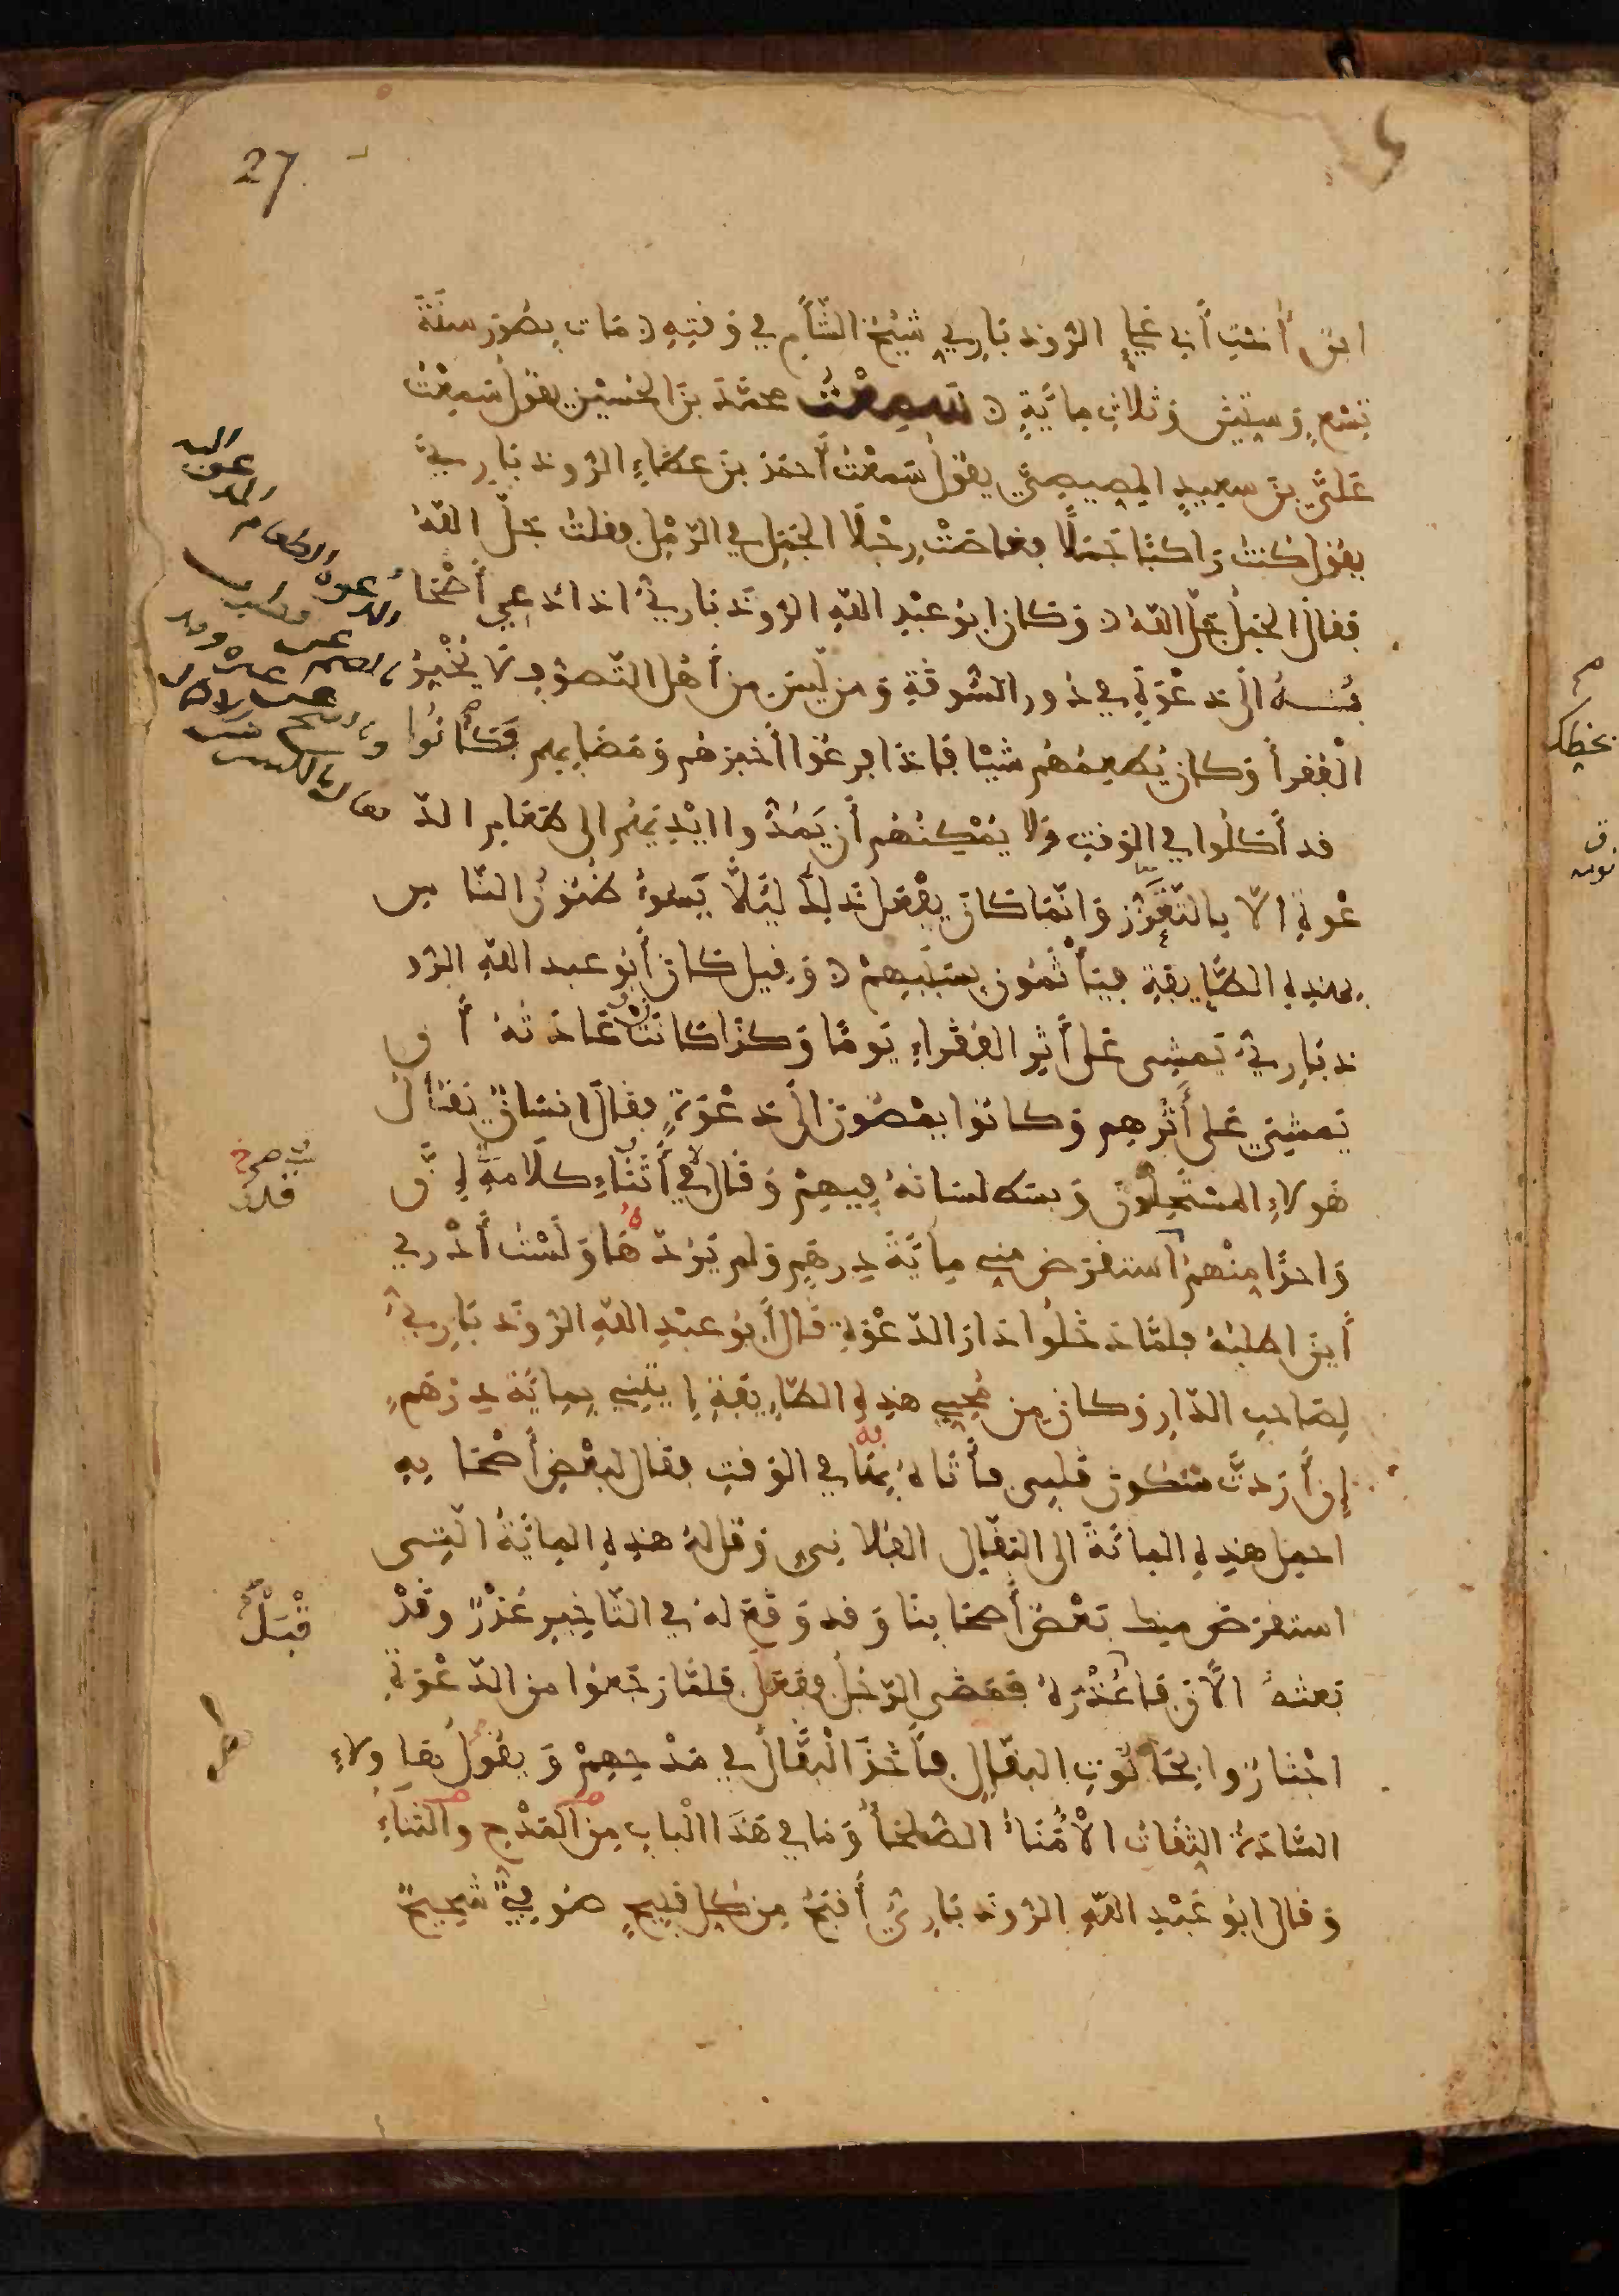 27
ابن أخت أبي علي الروذباري شيخ الشأم في وقته مات بصور سنة
تسع وستين وثلاث مائة سمعت محمد بن الحسين يقول سمعت
علي بن سعيد المصيصي يقول سمعت أحمد بن عطاء الروذباري
يقول كنت راكبا جملا فغاصت رجلا الجمل في الرمل فقلت جل الله
فقال الجمل جل الله وكان ابو عبد الله الروذباري اذا دعي أصحا
به الى دعوة في دور السوقة ومن ليس من أهل التصوف لا يخبر
الفقرا وكان يطعمهم شيئا فاذا فرغوا أخبرهم ومضا بهم فكانوا
قد أكلوا في الوقت ولا يمكنهم أن يمدوا ايديهم الى طعام الد
عوة الا بالتعزز وانما كان يفعل ذلك ليلا يسوء ظنون الناس
بهذه الطايفة فيتأثمون بسببهم وقيل كان أبو عبد الله الرو
ذباري يمشي على أثر الفقراء يوما وكذا كانت عادته أن
يمشي على أثرهم وكانوا يمضون الى دعوة فقال انسان بقال
هولاء المستحلون وبسط لسانه فيهم وقال في أثناء كلامه إن
واحدا منهم استقرض مني مائة درهم ولم يردها ولست أدري
أين اطلبه فلما دخلوا دار الدعوة قال أبو عبد الله الروذباري
لصاحب الدار وكان من محبي هذه الطايفة ايتني بماية درهم
إن أردت سكون قلبي فأتاه بها في الوقت فقال لبعض أصحابه
احمل هذه المائة الى البقال الفلاني وقل له هذه المائة التي
استقرض منك بعض أصحابنا وقد وقع له في التأخير عذر وقد
بعثه الأن فاعذره فمضى الرجل وفعل فلما رجعوا من الدعوة
اجتازوا بحانوت البقال فأخذ البقال في مدحهم ويقول هاولاء
السادة الثقات الأمنا الصلحا وما في هذا الباب من المدح والثناء
وقال ابو عبد الله الروذباري أقبح من كل قبيح صوفي شحيح